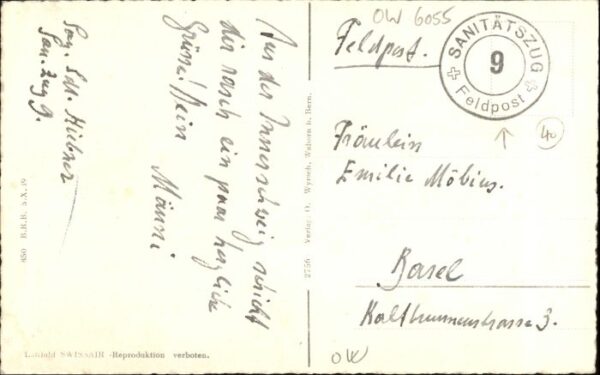 OW 6055
Feldpost.
SANITÄTSZUG
9
Feldpost
40
Fräulein
Emilie Möbius.
Basel
Kaltbrunnenstrasse 3.
OW
San. Sdt. Hübner
San. Zug 9.
Aus der Innerschweiz schickt
dir rasch ein paar herzliche
Grüsse! Dein
Männi
2756 Verlag: O. Wyrsch, Wabern b. Bern.
650 B.R.B. 3.X.39
Luftbild SWISSAIR - Reproduktion verboten.